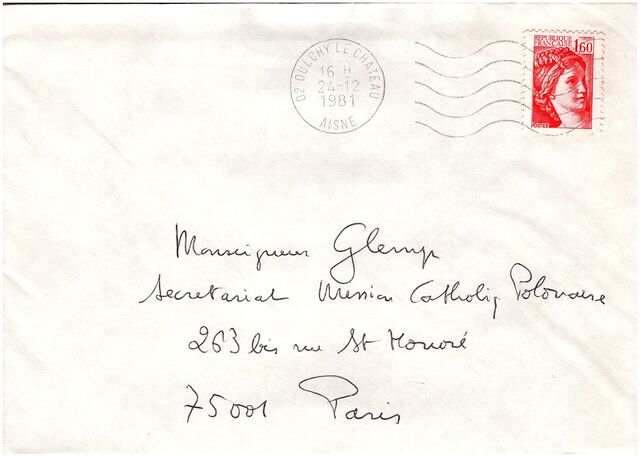 02 OULCHY LE CHATEAU
16 H
24-12
1981
AISNE
REPUBLIQUE
FRANCAISE 1,60
POSTES
Monseigneur Glemp
Secretariat Mission Catholiq Polonaise
263 bis rue St Honoré
75001 Paris